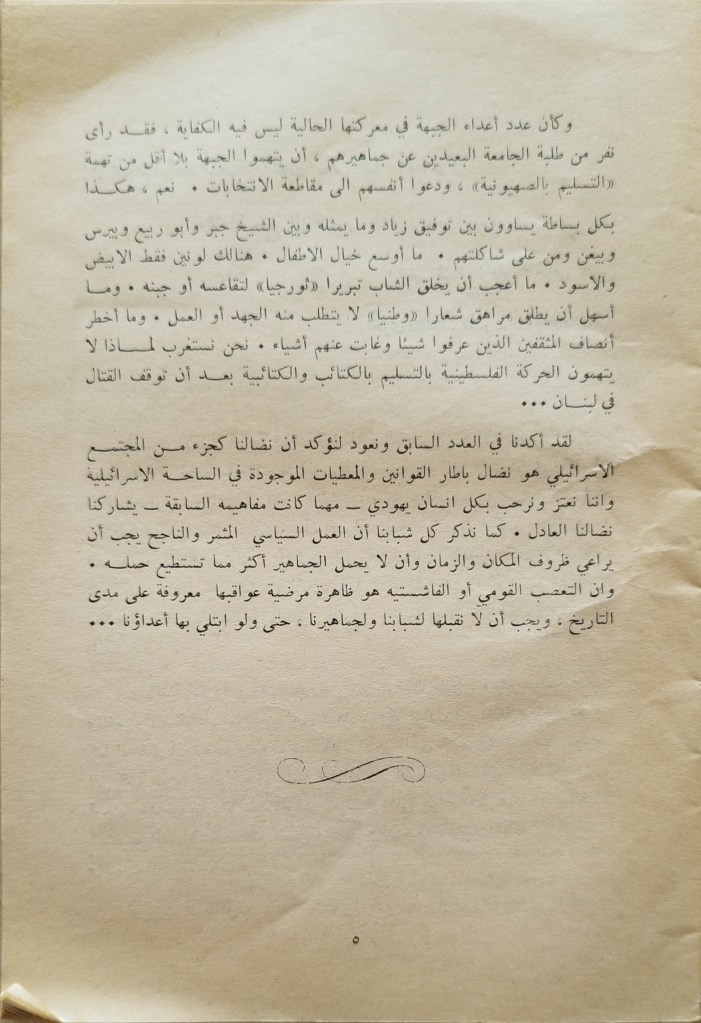 وكأن عدد أعداء الجبهة في معركتها الحالية ليس فيه الكفاية ، فقـد رأى
نفر من طلبة الجامعة البعيدين عن جماهيرهم ، أن يتهموا الجبهة بلا أقل من تهمة
«التسليم بالصهيونية» ، ودعوا أنفسهم الى مقاطعة الانتخابات • نعم ، هكـذا
بكل بساطة يساوون بين توفيق زياد وما يمثله وبين الشيخ جبر وأبو ربيع وبيرس
وبيغن ومن على شاكلتهم • ما أوسع خيال الاطفال • هنالك لونين فقط الابيض
والاسود • ما أعجب أن يخلق الشاب تبريرا «ثورجيا» لتقاعسه أو جبنه • ومـا
أسهل أن يطلق مراهق شعارا «وطنيا» لا يتطلب منه الجهد أو العمل • وما أخطر
أنصاف المثقفين الذين عرفوا شيئا وغابت عنهم أشياء • نحن نستغرب لمـاذا لا
يتهمون الحركة الفلسطينية بالتسليم بالكتائب والكتائبية بعـد أن توقف القتال
في لبنـان •••
لقد أكدنا في العدد السابق ونعود لنؤكد أن نضالنا كجزء مـن المجتمـع
الاسرائيلي هو نضال باطار القوانين والمعطيات الموجودة في الساحة الاسرائيلية
واننا نعتز ونرحب بكل انسان يهودي ــ مهما كانت مفاهيمه السابقة ــ يشاركنا
نضالنا العادل • كما نذكر كل شبابنا أن العمل السياسي المثمر والناجح يجب أن
يراعي ظروف المكان والزمان وأن لا يحمل الجماهير أكثر مما تستطيع حملـه •
وان التعصب القومي أو الفاشستيه هو ظاهرة مرضية عواقبها معروفة على مدى
التاريخ ، ويجب أن لا نقبلها لشبابنا ولجماهيرنا ، حتى ولو ابتلي بها أعداؤنا •••
٥